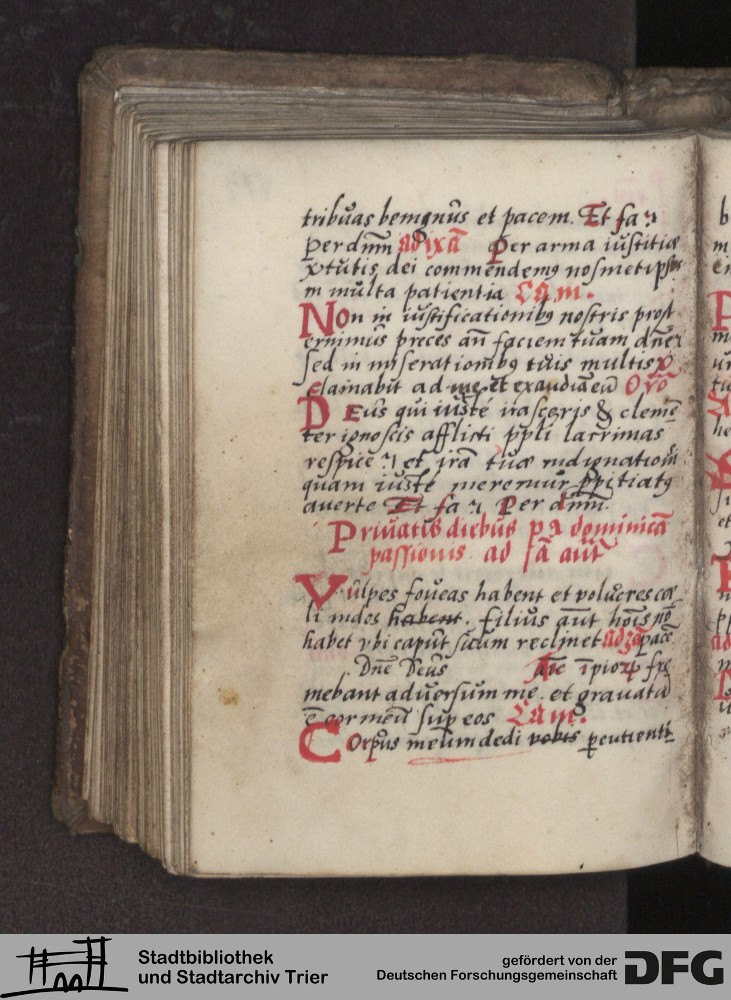 tribuas benignus et pacem. Et fa⁊
per dn̄m ad ixā Per arma iustitiæ
x̄tutis dei commendemꝯ nosmetipsos
in multa patientia Cam.
Non in iustificationibꝯ nostris prost
ernimus preces an̄ faciem tuam dn̄e:
sed in miserationibꝯ tuis multis
Clamabit ad me et exaudiā eū Orō
Deus qui iuste irasceris & clemē
ter ignoscis afflicti ppli lacrimas
respice ⁊ et irā tuæ indignationis
quam iuste meremur ꝓpitiatꝯ
auerte Et fa⁊ Per dn̄m.
Priuatis diebus pꝰ dominicā
passionis. ad fā ant̄
Vulpes foueas habent et volucres cæ
li nidos habent. filius aut̄ hōis nō
habet vbi caput suum reclinet ad pacē
Dn̄e Deus īpioꝝ fre
mebant aduersum me. et grauata
ē cor meū sup eos Cam.
Corpus meum dedi vobis percutienti
Stadtbibliothek
und Stadtarchiv Trier
gefördert von der
Deutschen Forschungsgemeinschaft
DFG